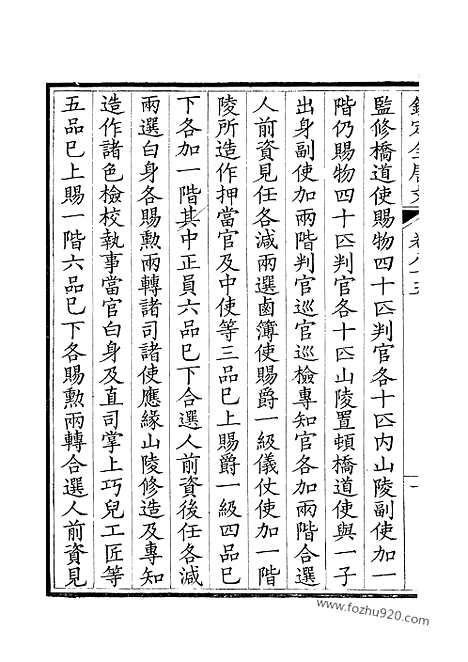 監修橋道使賜物四十匹判官各十匹内山陵副使加一
階仍賜物四十匹判官各十匹山陵置頓橋道使與一子
出身副使加兩階判官巡官巡檢專知官各加兩階合選
人前資見任各減兩選鹵簿使賜爵一級儀仗使加一階
陵所造作押當官及中使等三品已上賜爵一級四品已
下各加一階其中正員六品已下合選人前資後任各減
兩選白身各賜勲兩轉諸司諸使應緣山陵修造及專知
造作諸色檢校執事當官白身及直司掌上巧兒工匠等
五品已上賜一階六品已下各賜勲兩轉合選人前資見
www.fozhu920.com